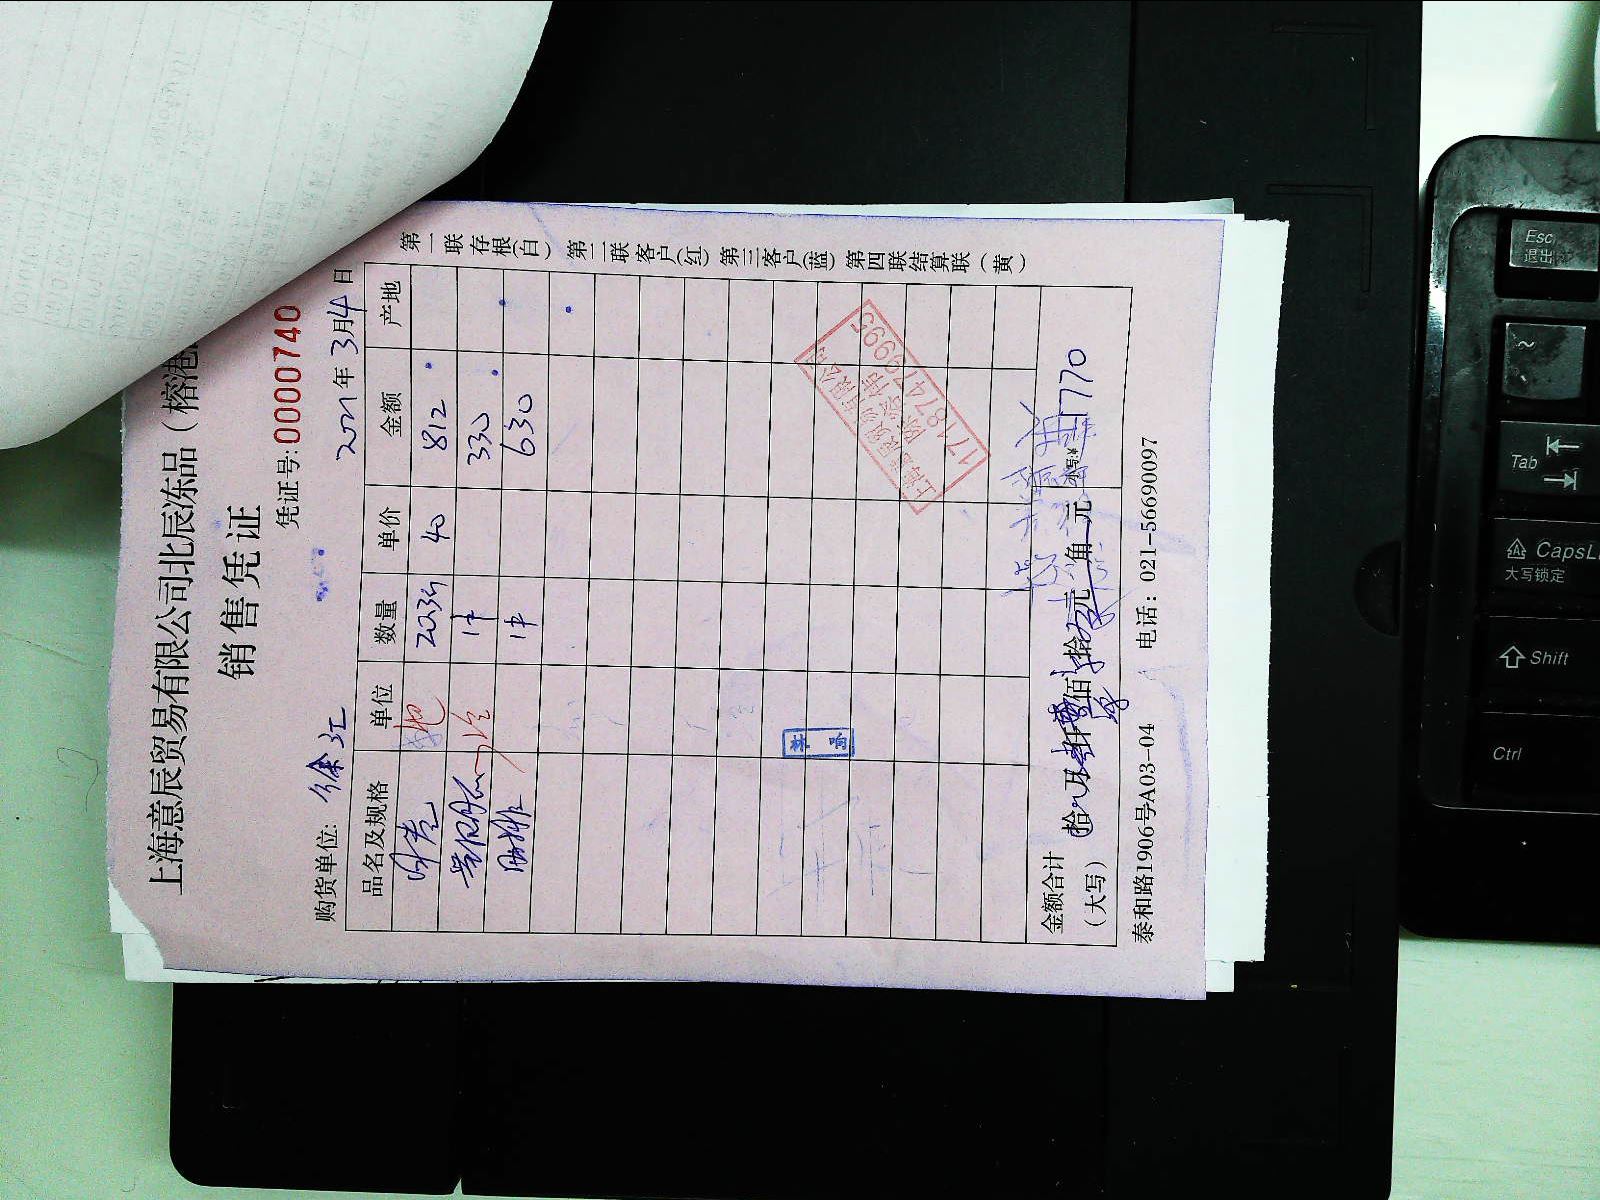 上海意辰贸易有限公司北辰冻品（榕港
销售凭证
凭证号:0000740
购货单位: 徐江 2021年3月4日
品名及规格 单位 数量 单价 金额 产地
40 812
1件 330
肋排 1件 630
上海意辰贸易有限公司
17187479995
金额合计（大写） 拾 万 仟 佰 拾 元 角 元 小写:¥ 1770
泰和路1906号A03-04 电话：021-56690097
第一联存根（白） 第二联客户（红） 第三客户（蓝） 第四联结算联（黄）
Esc
退出
~
Tab
CapsL
大写锁定
Shift
Ctrl